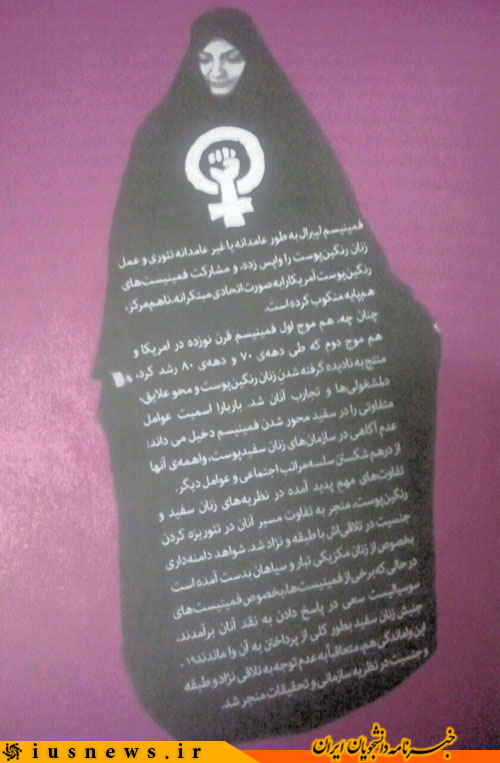 فمینیسم لیبرال به طور عامدانه یا غیر عامدانه تئوری و عمل
زنان رنگین‌پوست را واپس زده، و مشارکت فمینیست‌های
رنگین‌پوست آمریکا را به صورت اتحادی مبتکرانه، ناهم‌مرکز،
هم‌پایه منکوب کرده است.
چنان چه، هم موج اول فمینیسم قرن نوزده در امریکا و
هم موج دوم که طی دهه‌ی ۷۰ و دهه‌ی ۸۰ رشد کرد،
منتج به نادیده گرفته شدن زنان رنگین‌پوست و محو علایق،
دلمشغولی‌ها و تجارب آنان شد. باربارا اسمیت عوامل
متفاوتی را در سفید محور شدن فمینیسم دخیل می داند:
عدم آگاهی در سازمان‌های زنان سفیدپوست، واهمه‌ی آنها
از درهم شکستن سلسه مراتب اجتماعی و عوامل دیگر.
تفاوت‌های مهم پدید آمده در نظریه‌های زنان سفید و
رنگین‌پوست، منجر به تفاوت مسیر آنان در تئوریزه کردن
جنسیت در تلاقی‌اش با طبقه و نژاد شد. شواهد دامنه‌داری
بخصوص از زنان مکزیکی تبار و سیاهان بدست آمده است
در حالی که برخی از فمینیست‌ها، بخصوص فمینیست‌های
سوسیالیست سعی در پاسخ دادن به نقد آنان برآمدند،
جنبش زنان سفید بطور کلی از پرداختن به آن وا ماندند۱۹.
این واماندگی هم، متعاقباً به عدم توجه به تلاقی نژاد و طبقه
و جنسیت در نظریه سازمانی و تحقیقات منجر شد.
iusnews.ir
خبرنامه دانشجویان ایران